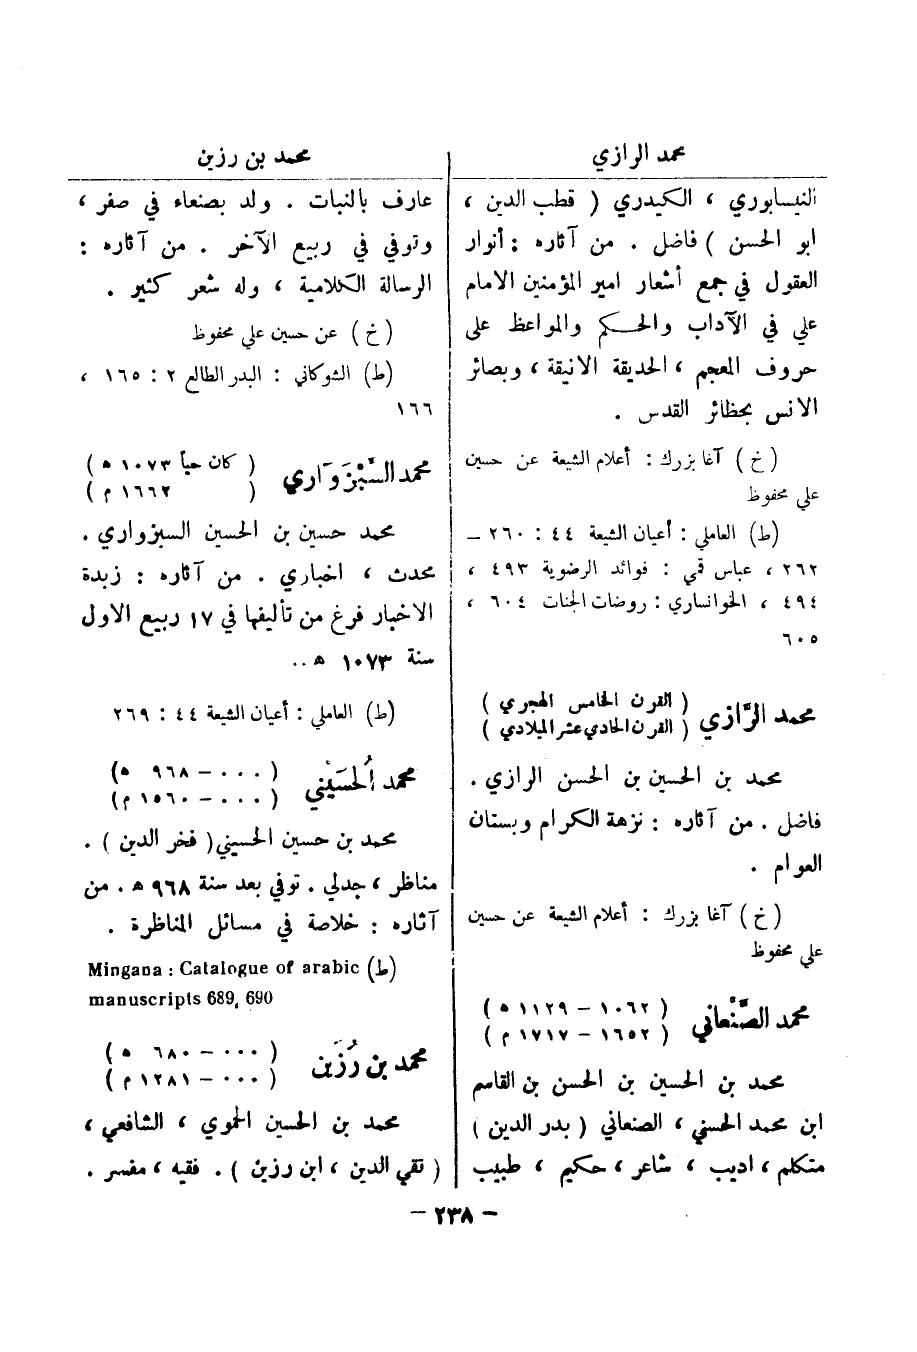 محمد الرازي
النيسابوري ، الكيدري ( قطب الدين ،
ابو الحسن ) فاضل . من آثاره : أنوار
العقول في جمع أشعار امير المؤمنين الامام
علي في الآداب والحكم والمواعظ على
حروف المعجم ، الحديقة الانيقة ، وبصائر
الانس بحظائر القدس .
( خ ) آغا بزرك : أعلام الشيعة عن حسين
علي محفوظ
(ط) العاملي : أعيان الشيعة ٤٤ : ٢٦٠ –
٢٦٢ ، عباس قمي : فوائد الرضوية ٤٩٣ ،
٤٩٤ ، الخوانساري : روضات الجنات ٦٠٤ ،
٦٠٥
محمد الرَّازي ( القرن الخامس الهجري )
( القرن الحادي عشر الميلادي )
محمد بن الحسين بن الحسن الرازي .
فاضل . من آثاره : نزهة الكرام وبستان
العوام .
( خ ) آغا بزرك : أعلام الشيعة عن حسين
علي محفوظ
محمد الصَّنْعاني ( ١٠٦٢ – ١١٢٩ ه )
( ١٦٥٢ – ١٧١٧ م )
محمد بن الحسين بن الحسن بن القاسم
ابن محمد الحسني ، الصنعاني ( بدر الدين )
متكلم ، اديب ، شاعر ، حكيم ، طبيب
محمد بن رزين
عارف بالنبات . ولد بصنعاء في صفر ،
وتوفي في ربيع الآخر . من آثاره :
الرسالة الكلامية ، وله شعر كثير .
( خ ) عن حسين علي محفوظ
(ط) الشوكاني : البدر الطالع ٢ : ١٦٥ ،
١٦٦
محمد السَّبْزَوَاري ( كان حياً ١٠٧٣ ه )
( ١٦٦٢ م )
محمد حسين بن الحسين السبزواري .
محدث ، اخباري . من آثاره : زبدة
الاخبار فرغ من تأليفها في ١٧ ربيع الاول
سنة ١٠٧٣ ه ..
(ط) العاملي : أعيان الشيعة ٤٤ : ٢٦٩
محمد الحُسَيْني ( ٠٠٠ – ٩٦٨ ه )
( ٠٠٠ – ١٥٦٠ م )
محمد بن حسين الحسيني ( فخر الدين ) .
مناظر ، جدلي . توفي بعد سنة ٩٦٨ ه . من
آثاره : خلاصة في مسائل المناظرة .
(ط) Mingana : Catalogue of arabic
manuscripts 689, 690
محمد بن رُزَين ( ٠٠٠ – ٦٨٠ ه )
( ٠٠٠ – ١٢٨١ م )
محمد بن الحسين الحموي ، الشافعي ،
( تقي الدين ، ابن رزين ) . فقيه ، مفسر .
– ٢٣٨ –